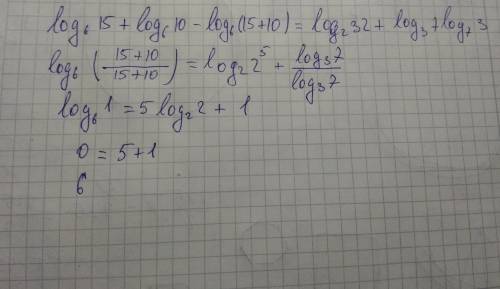 log₆ 15 + log₆ 10 - log₆ (15+10) = log₂ 32 + log₃ 7 log₇ 3
log₆ ( (15+10)/(15+10) ) = log₂ 2⁵ + log₃7/log₃7
log₆ 1 = 5 log₂ 2 + 1
0 = 5+1
6